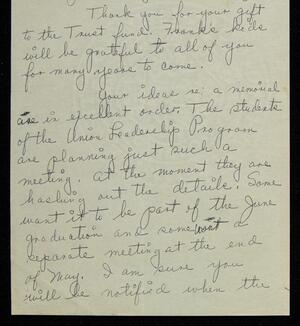 Thank you for your gift
to the Trust fund. Frank's kids
will be grateful to all of you
for many years to come.
Your ideas re: a memorial
are in excellent order. The students
of the Union Leadership Program
are planning just such a
meeting. At the moment they are
hashing out the details. Some
want it to be part of the June
graduation and some want a
separate meeting at the end
of May. I am sure you
will be notified when the